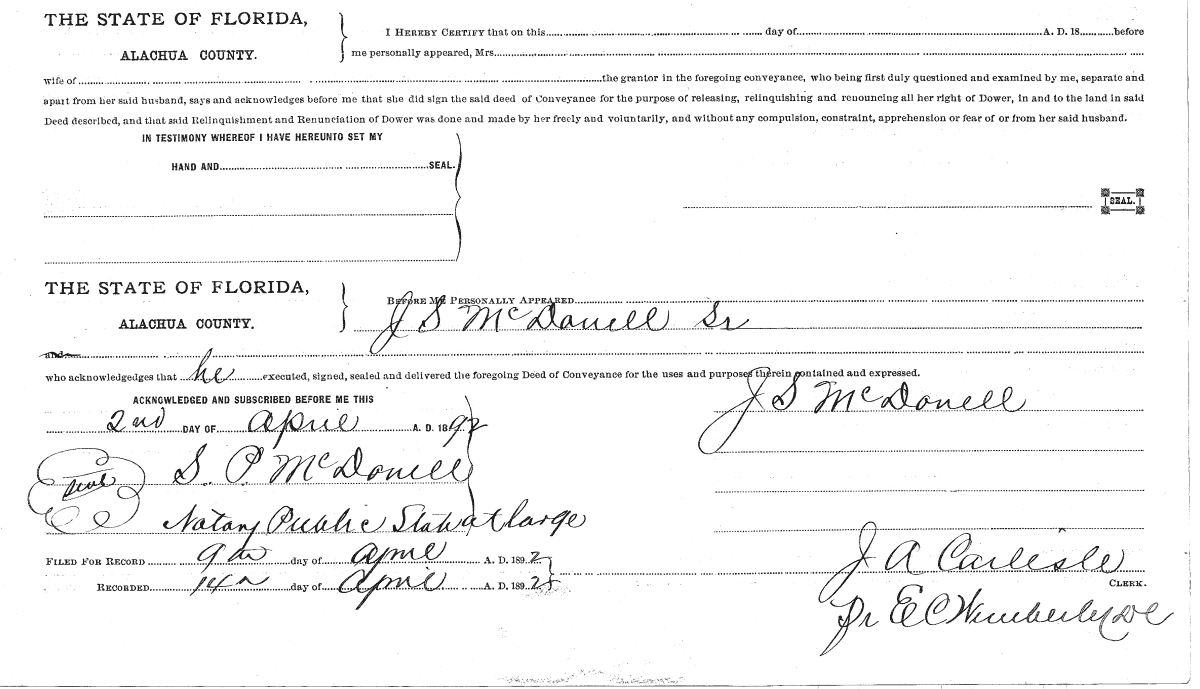 THE STATE OF FLORIDA,
ALACHUA COUNTY.
I HEREBY CERTIFY that on this day of A. D. 18 before
me personally appeared, Mrs.
wife of the grantor in the foregoing conveyance, who being first duly questioned and examined by me, separate and
apart from her said husband, says and acknowledges before me that she did sign the said deed of Conveyance for the purpose of releasing, relinquishing and renouncing all her right of Dower, in and to the land in said
Deed described, and that said Relinquishment and Renunciation of Dower was done and made by her freely and voluntarily, and without any compulsion, constraint, apprehension or fear of or from her said husband.
IN TESTIMONY WHEREOF I HAVE HEREUNTO SET MY
HAND AND SEAL.
SEAL.
THE STATE OF FLORIDA,
ALACHUA COUNTY.
BEFORE ME PERSONALLY APPEARED
J S McDonell Sr
and
who acknowledgedges that he executed, signed, sealed and delivered the foregoing Deed of Conveyance for the uses and purposes therein contained and expressed.
J S McDonell
ACKNOWLEDGED AND SUBSCRIBED BEFORE ME THIS
2nd DAY OF April A. D. 1892
S. P. McDonell
Seal
Notary Public State at large
FILED FOR RECORD 9th day of April A. D. 1892
RECORDED 14th day of April A. D. 1892
J A Carlisle
CLERK.
Pr E C Wimberly DC